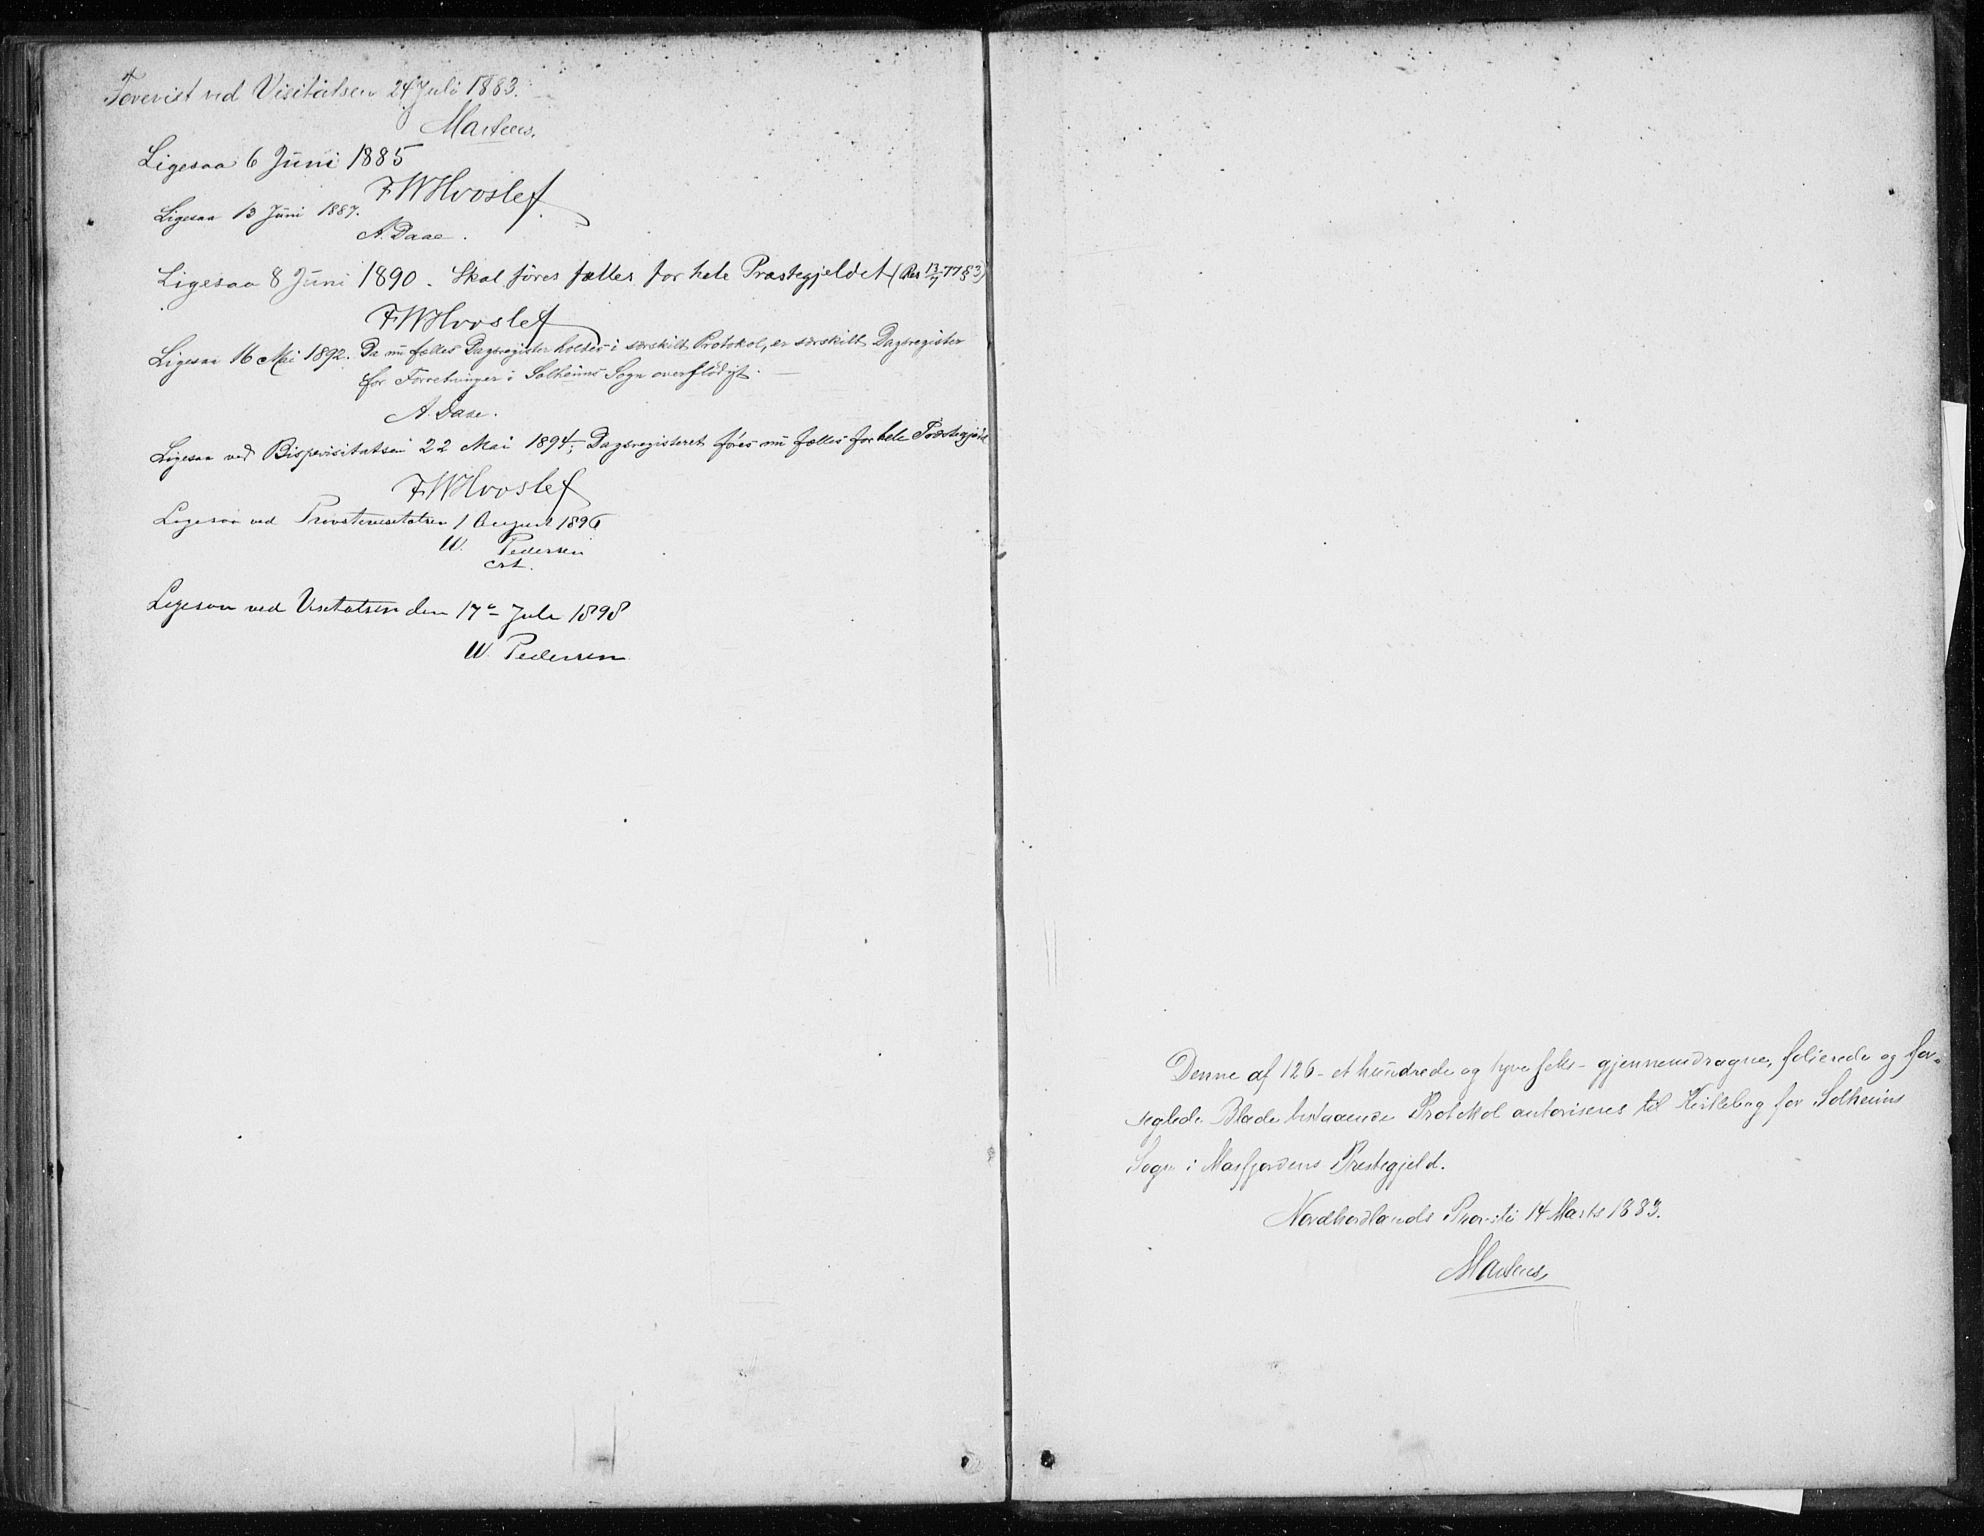 Forevist ved Visitatsen 24 Juli 1883.
Martens.
Ligesaa 6 Juni 1885
F W Hvoslef
Ligesaa 13 Juni 1887.
A. Daae.
Ligesaa 8 Juni 1890. Skal føres fælles for hele Præstegjeldet (Res 13/7 77 § 3)
F W Hvoslef
Ligesaa 16 Mai 1892. Da nu fælles Dagsregister holdes i særskilt Protokol, er særskilt Dagsregister
for Forretninger i Solheims Sogn overflødigt. —
A. Daae.
Ligesaa ved Bispevisitatsen 22 Mai 1894; Dagsregisteret føres nu fælles for hele Præstegjeld
F W Hvoslef
Ligesaa ved Provstevisitatsen 1 August 1896
W. Pedersen
cst.
Ligesaa ved Visitatsen den 17de Juli 1898
W. Pedersen
Denne af 126 - et hundrede og tyve seks - gjennemdragne, folierede og for-
seglede Blade bestaaende Protokol autoriseres til Kirkebog for Solheims
Sogn i Masfjordens Prestegjeld.
Nordhordlands Provsti 14 Marts 1883.
Martens,